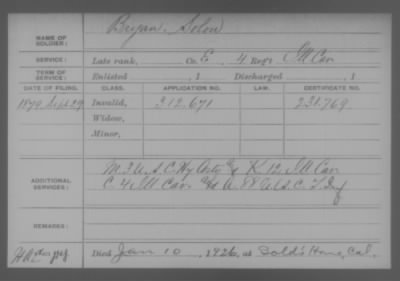 NAME OF SOLDIER: Bryan, Solon
SERVICE: Late rank, Co. E, 4 Regt. Ill Cav
TERM OF SERVICE: Enlisted , 1 Discharged , 1
DATE OF FILING. CLASS. APPLICATION NO. LAW. CERTIFICATE NO.
1879 Sept 29 Invalid, 312,671 231.769
Widow,
Minor,
ADDITIONAL SERVICES: M 3 U.S.C. Hy Arty & K 12, Ill Cav
C 4 Ill Cav
REMARKS:
Died Jan 10, 1926, at Sold's Home, Cal.